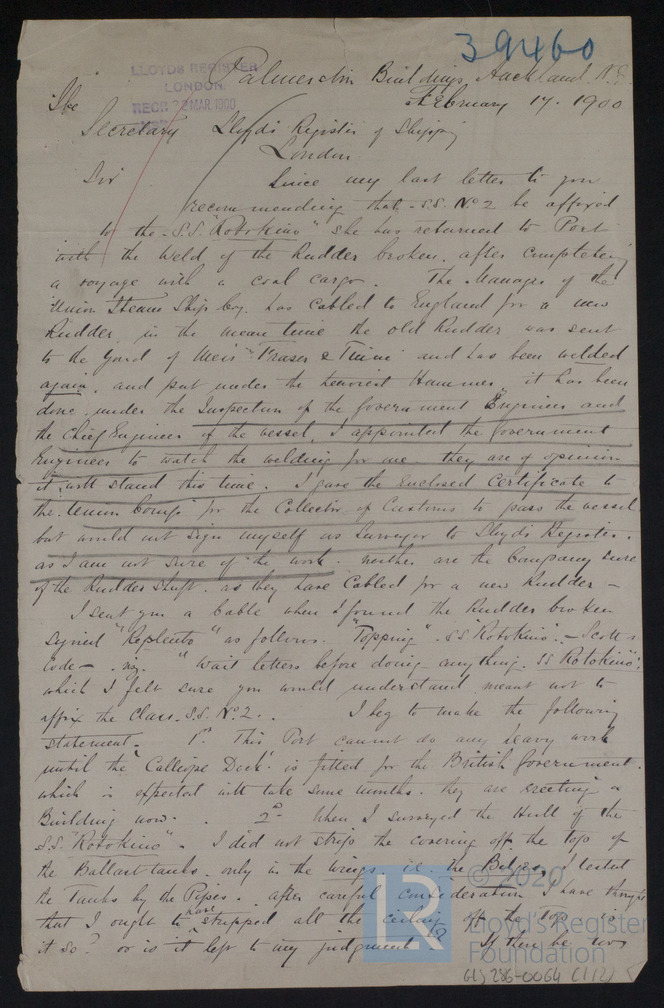 39460
LLOYDS REGISTER
LONDON.
RECD 22 MAR 1900
Palmerston Buildings, Auckland N.Z.
February 17. 1900
The
Secretary Lloyd's Register of Shipping
London
Sir Since my last letter to you
recommending that S.S. No 2 be affixed
to the S.S. "Rotokino" she has returned to Port
with the weld of the Rudder broken, after completing
a voyage with a coal cargo. The Manager of the
Union Steam Ship Coy. has Cabled to England for a new
Rudder, in the mean time the old Rudder was sent
to the Yard of Mess Fraser & Tinni and has been welded
again, and put under the heaviest Hammer, it has been
done under the Inspection of the Government Engineer and
the Chief Engineer of the vessel, I appointed the Government
Engineer to watch the welding for me they are of opinion
it will stand this time. I gave the Enclosed Certificate to
the Union Comp for the Collector of Customs to pass the vessel
but would not sign myself as Surveyor to Lloyd's Register.
as I am not sure of the work. neither are the Company sure
of the Rudder shaft. as they have Cabled for a new Rudder -
I sent you a Cable when I found the Rudder broken
signed as follows. "Topping". S.S. Rotokino". - Scotts
Code - "Wait letters before doing anything. SS Rotokino".
which I felt sure you would understand meant not to
affix the Class. S.S. No 2. . I beg to make the following
statement - 1st This Port cannot do any heavy work
until the "Calliope Dock" is fitted for the British Government.
which is expected will take some months. they are erecting a
Building now. . 2d - When I surveyed the Hull of the
S.S. "Rotokino" - I did not strip the covering off the top of
the Ballast tanks. only in the wings i.e. the Bilges, I tested
the Tanks by the Pipes. after careful consideration I have thought
that I ought to have stripped all the ceiling off the top is
it so? or is it left to my judgment? If there be two
LR
© 2020
Lloyd's Register
Foundation
(1/2)